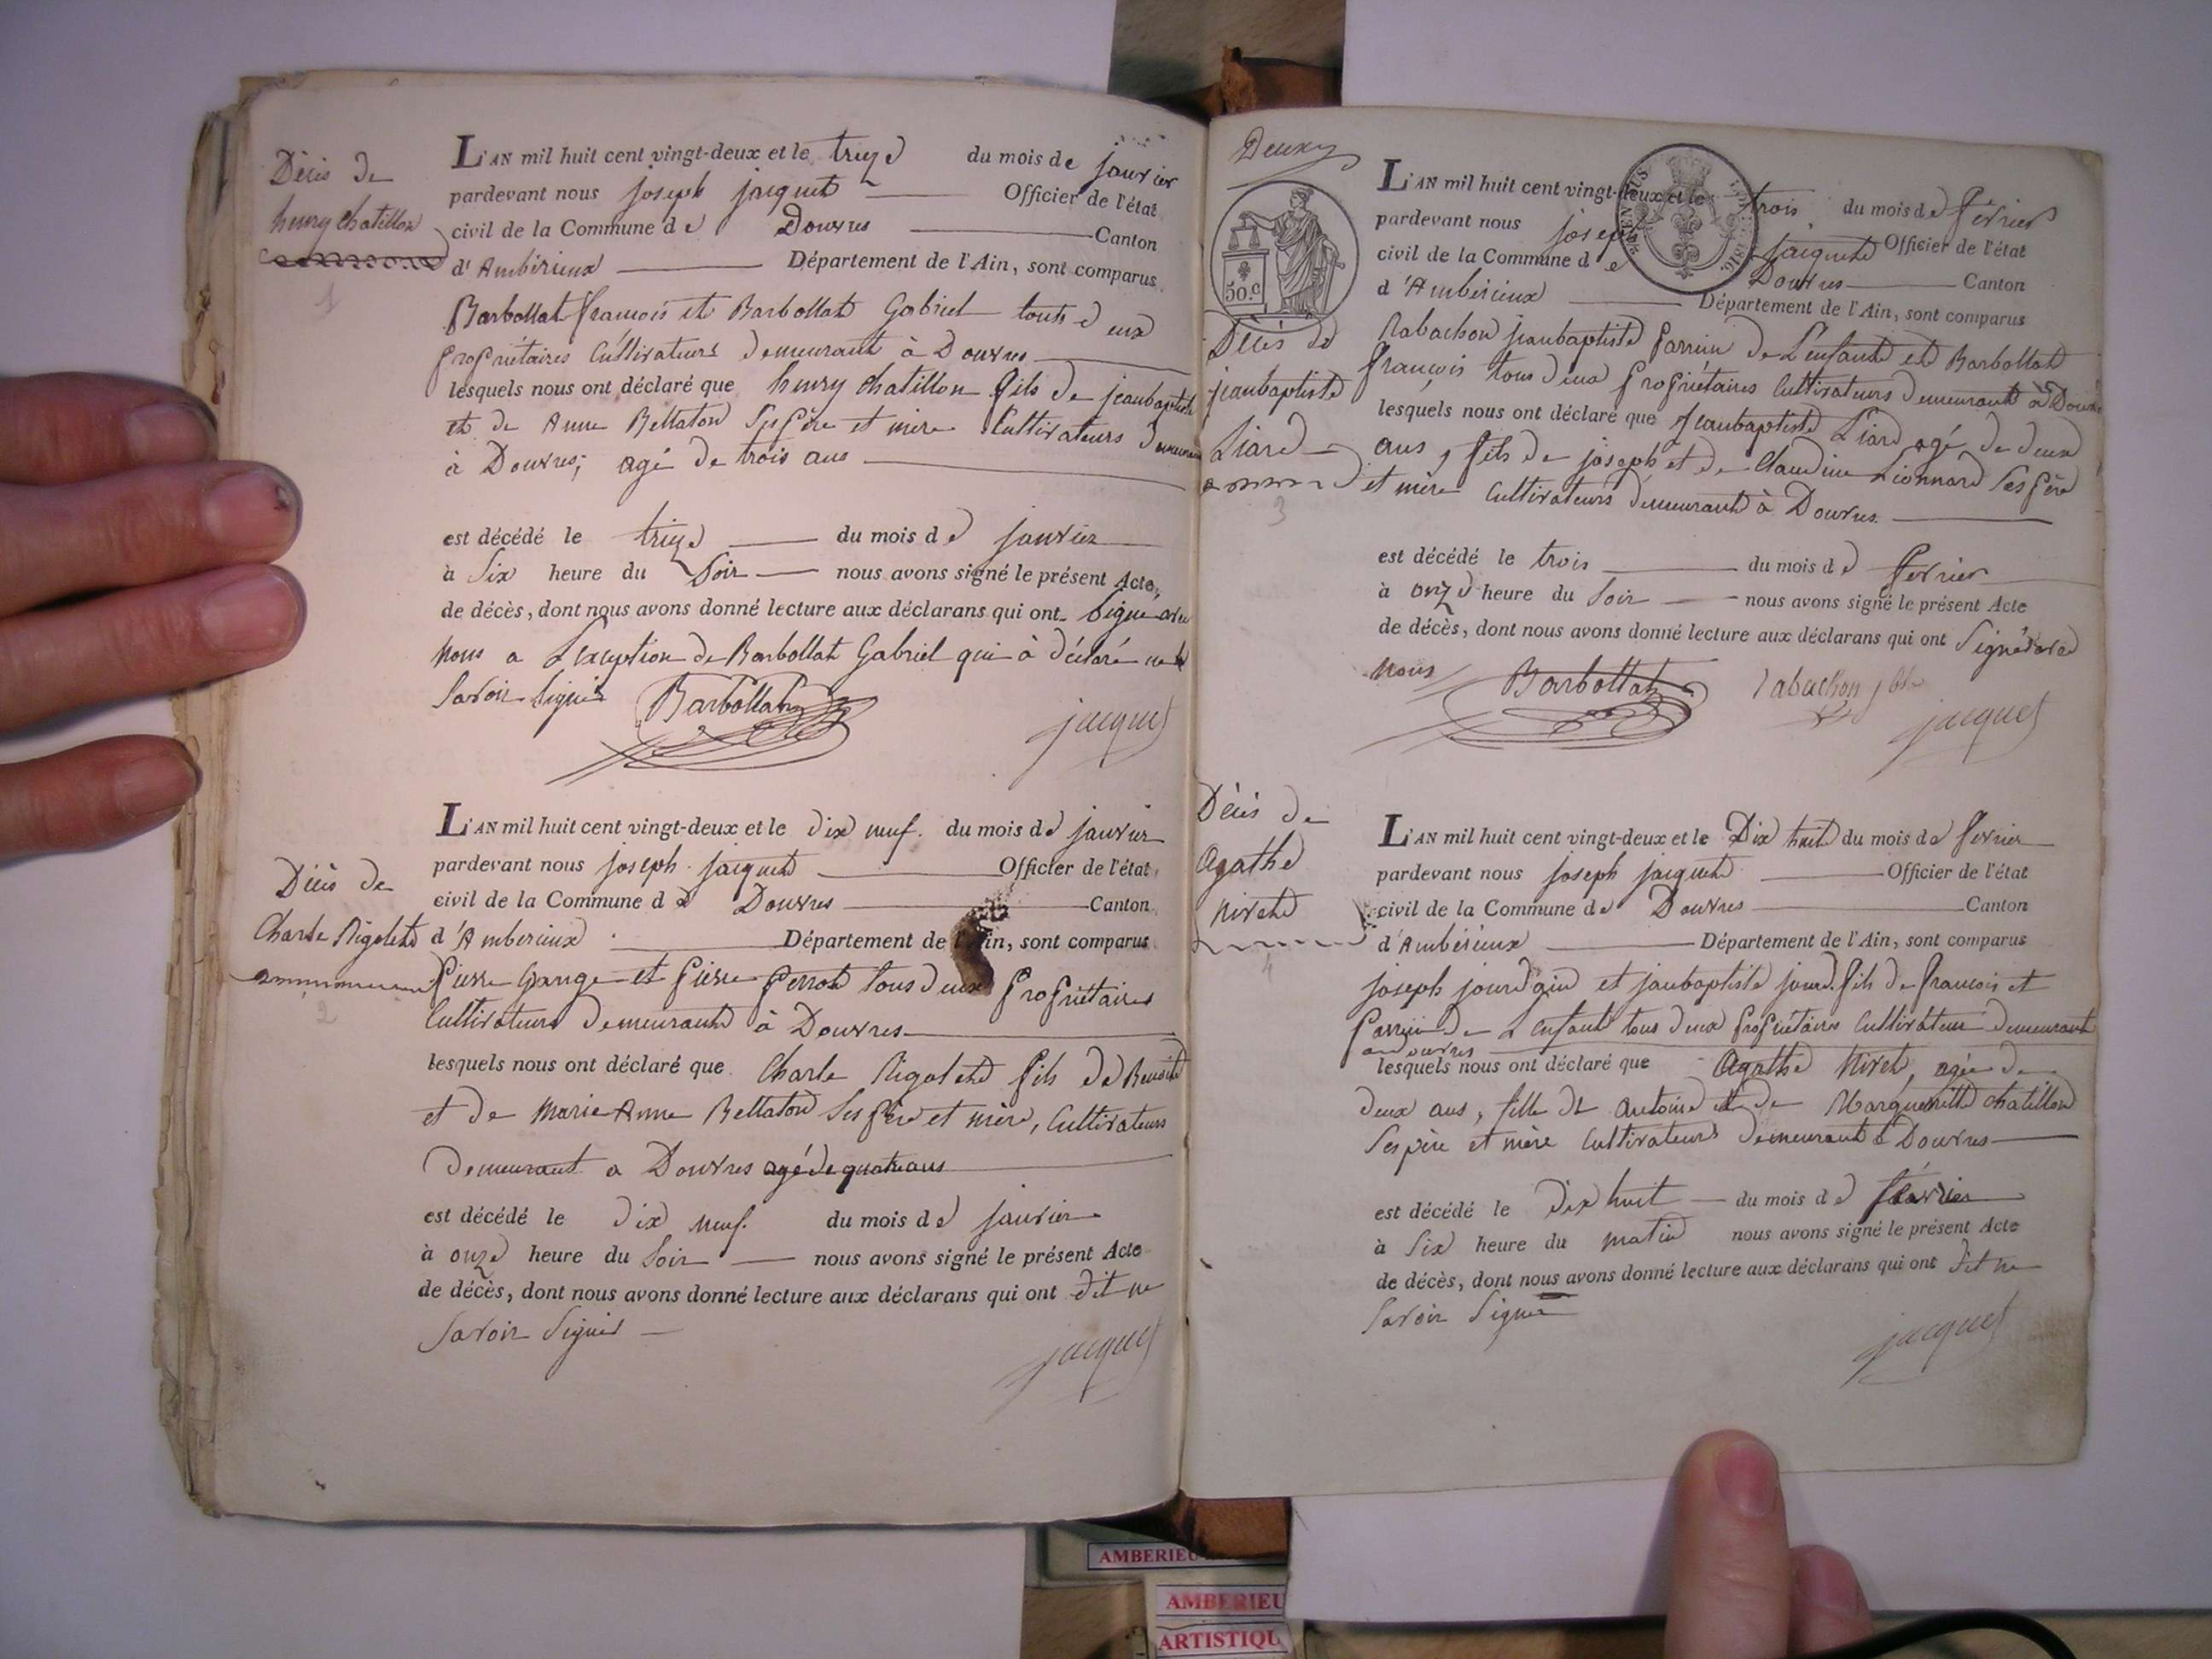 Décès de
henry chatillon
1
L'AN mil huit cent vingt-deux et le treize du mois de janvier
pardevant nous joseph jacquet Officier de l'état
civil de la Commune de Douvres Canton
d'Ambérieux Département de l'Ain, sont comparus
Barbollat francois et Barbollat Gabriel touts deux
propriétaires Cultivateurs demeurant à Douvres
lesquels nous ont déclaré que henry chatillon fils de jeanbaptiste
et de Anne Bellaton Ses père et mère Cultivateurs demeurant
à Douvres; agé de trois ans
est décédé le treize du mois de janvier
à Six heure du Soir nous avons signé le présent Acte
de décès, dont nous avons donné lecture aux déclarans qui ont Signé avec
nous a L'exception de Barbollat Gabriel qui à déclaré ne
Savoir Signer Barbollat
jacquet
Décès de
Charle Rigolet
2
L'AN mil huit cent vingt-deux et le dix neuf du mois de janvier
pardevant nous joseph jacquet Officier de l'état
civil de la Commune de Douvres Canton
d'Amberieux Département de l'Ain, sont comparus
Pierre Grange et pierre perrot tous deux propriétaires
Cultivateurs demeurant à Douvres
lesquels nous ont déclaré que Charle Rigolet fils de Benoit
et de Marie Anne Bellaton Ses père et mère, Cultivateurs
Demeurant a Douvres agé de quatre ans
est décédé le dix neuf du mois de janvier
à onze heure du Soir nous avons signé le présent Acte
de décès, dont nous avons donné lecture aux déclarans qui ont dit ne
Savoir Signer
jacquet
Deux
50.c
1816.
Décès de
jeanbaptiste
Liard
3
L'AN mil huit cent vingt-deux et le trois du mois de février
pardevant nous joseph jacquet Officier de l'état
civil de la Commune de Douvres Canton
d'Ambérieux Département de l'Ain, sont comparus
Rabachon jeanbaptiste parrein de L'enfant et Barbollat
françois tous deux propriétaires Cultivateurs demeurant à Douvres
lesquels nous ont déclaré que jeanbaptiste Liard agé de deux
ans, fils de joseph et de Claudine Lionnard Ses père
et mère Cultivateurs demeurant à Douvres
est décédé le trois du mois de fevrier
à onze heure du Soir nous avons signé le présent Acte
de décès, dont nous avons donné lecture aux déclarans qui ont Signé avec
nous Barbollat rabachon jbte
jacquet
Décès de
Agathe
Nivet
4
L'AN mil huit cent vingt-deux et le Dix huit du mois de fevrier
pardevant nous joseph jacquet Officier de l'état
civil de la Commune de Douvres Canton
d'Ambérieux Département de l'Ain, sont comparus
joseph jourdain et jeanbaptiste jourd. fils de francois et
parrein de L'enfant tous deux propriétaires Cultivateurs demeurant
a douvres
lesquels nous ont déclaré que Agathe Nivet, agée de
deux ans, fille de Antoine et de Marguerite chatillon
Ses père et mère Cultivateurs demeurant à Douvres
est décédé le dix huit du mois de février
à Six heure du matin nous avons signé le présent Acte
de décès, dont nous avons donné lecture aux déclarans qui ont dit ne
Savoir Signer
jacquet
AMBERIEU
AMBERIEU
ARTISTIQU